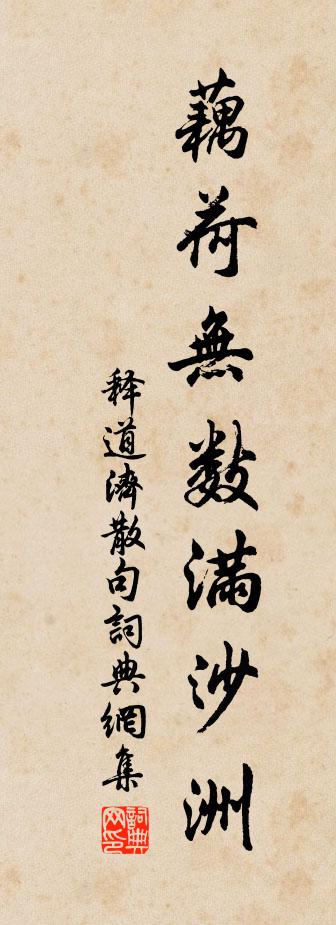 藕荷無数満沙洲
释道濟散句詞典網集
詞典网印